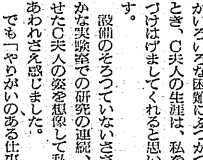 がいろいろな困難にぶつか
とき、C夫人の生涯は、私を
づけはげましてくれると思い
す。
設備のそろっていないささ
かな実験室での研究の連続、
せたC夫人の姿を想像して私
あわれさえ感じました。
でも「やりがいのある仕事